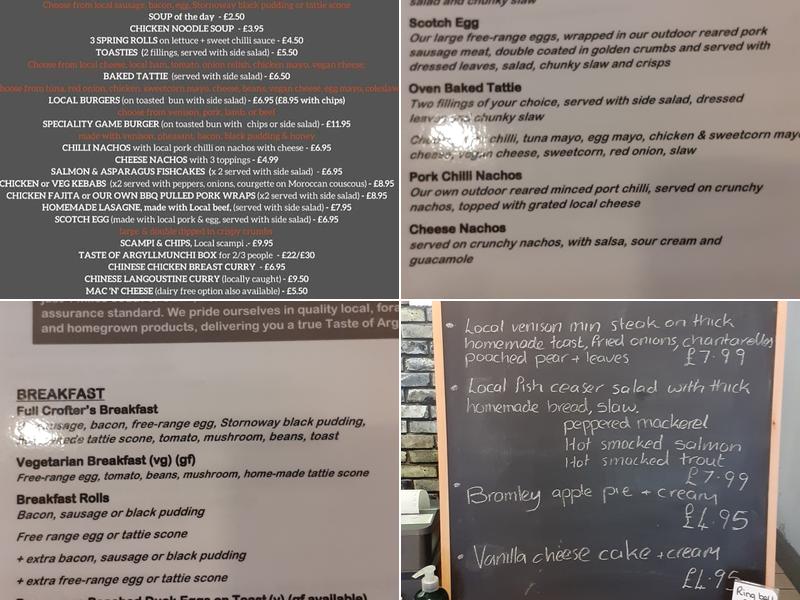 Choose from local sausage, bacon, egg, Stornoway black pudding or tattie scone
SOUP of the day - £2.50
CHICKEN NOODLE SOUP - £3.95
3 SPRING ROLLS on lettuce + sweet chilli sauce - £4.50
TOASTIES (2 fillings, served with side salad) - £5.50
Choose from local cheese, local ham, tomato, onion relish, chicken mayo, vegan cheese,
BAKED TATTIE (served with side salad) - £6.50
hoose from tuna, red onion, chicken, sweetcorn mayo, cheese, beans, vegan cheese, egg mayo, coleslaw
LOCAL BURGERS (on toasted bun with side salad) - £6.95 (£8.95 with chips)
choose from venison, pork, lamb, or beef
SPECIALITY GAME BURGER (on toasted bun with chips or side salad) - £11.95
made with venison, pheasant, bacon, black pudding & honey
CHILLI NACHOS with local pork chilli on nachos with cheese - £6.95
CHEESE NACHOS with 3 toppings - £4.99
SALMON & ASPARAGUS FISHCAKES (x 2 served with side salad) - £6.95
CHICKEN or VEG KEBABS (x2 served with peppers, onions, courgette on Moroccan couscous) - £8.95
CHICKEN FAJITA or OUR OWN BBQ PULLED PORK WRAPS (x2 served with side salad) - £8.95
HOMEMADE LASAGNE, made with Local beef, (served with side salad) - £7.95
SCOTCH EGG (made with local pork & egg, served with side salad) - £6.95
large & double dipped in crispy crumbs
SCAMPI & CHIPS, Local scampi .- £9.95
TASTE OF ARGYLLMUNCHI BOX for 2/3 people - £22/£30
CHINESE CHICKEN BREAST CURRY - £6.95
CHINESE LANGOUSTINE CURRY (locally caught) - £9.50
MAC 'N' CHEESE (dairy free option also available) - £5.50
salad and chunky slaw
Scotch Egg
Our large free-range eggs, wrapped in our outdoor reared pork
sausage meat, double coated in golden crumbs and served with
dressed leaves, salad, chunky slaw and crisps
Oven Baked Tattie
Two fillings of your choice, served with side salad, dressed
leaves and chunky slaw
chilli, tuna mayo, egg mayo, chicken & sweetcorn mayo
cheese, vegan cheese, sweetcorn, red onion, slaw
Pork Chilli Nachos
Our own outdoor reared minced port chilli, served on crunchy
nachos, topped with grated local cheese
Cheese Nachos
served on crunchy nachos, with salsa, sour cream and
guacamole
assurance standard. We pride ourselves in quality local, fore
and homegrown products, delivering you a true Taste of Arg
BREAKFAST
Full Crofter's Breakfast
sausage, bacon, free-range egg, Stornoway black pudding,
tattie scone, tomato, mushroom, beans, toast
Vegetarian Breakfast (vg) (gf)
Free-range egg, tomato, beans, mushroom, home-made tattie scone
Breakfast Rolls
Bacon, sausage or black pudding
Free range egg or tattie scone
+ extra bacon, sausage or black pudding
+ extra free-range egg or tattie scone
Poached Duck Eggs on Toast (v) (gf available)
• Local venison min steak on thick
homemade toast, fried onions, chantarelles
poached pear + leaves £7.99
• Local fish ceaser salad with thick
homemade bread, slaw.
peppered mackerel
Hot smocked salmon
Hot smocked trout
£7.99
• Bramley apple pie + cream
£4.95
• Vanilla cheese cake + cream
£4.95
Ring bell